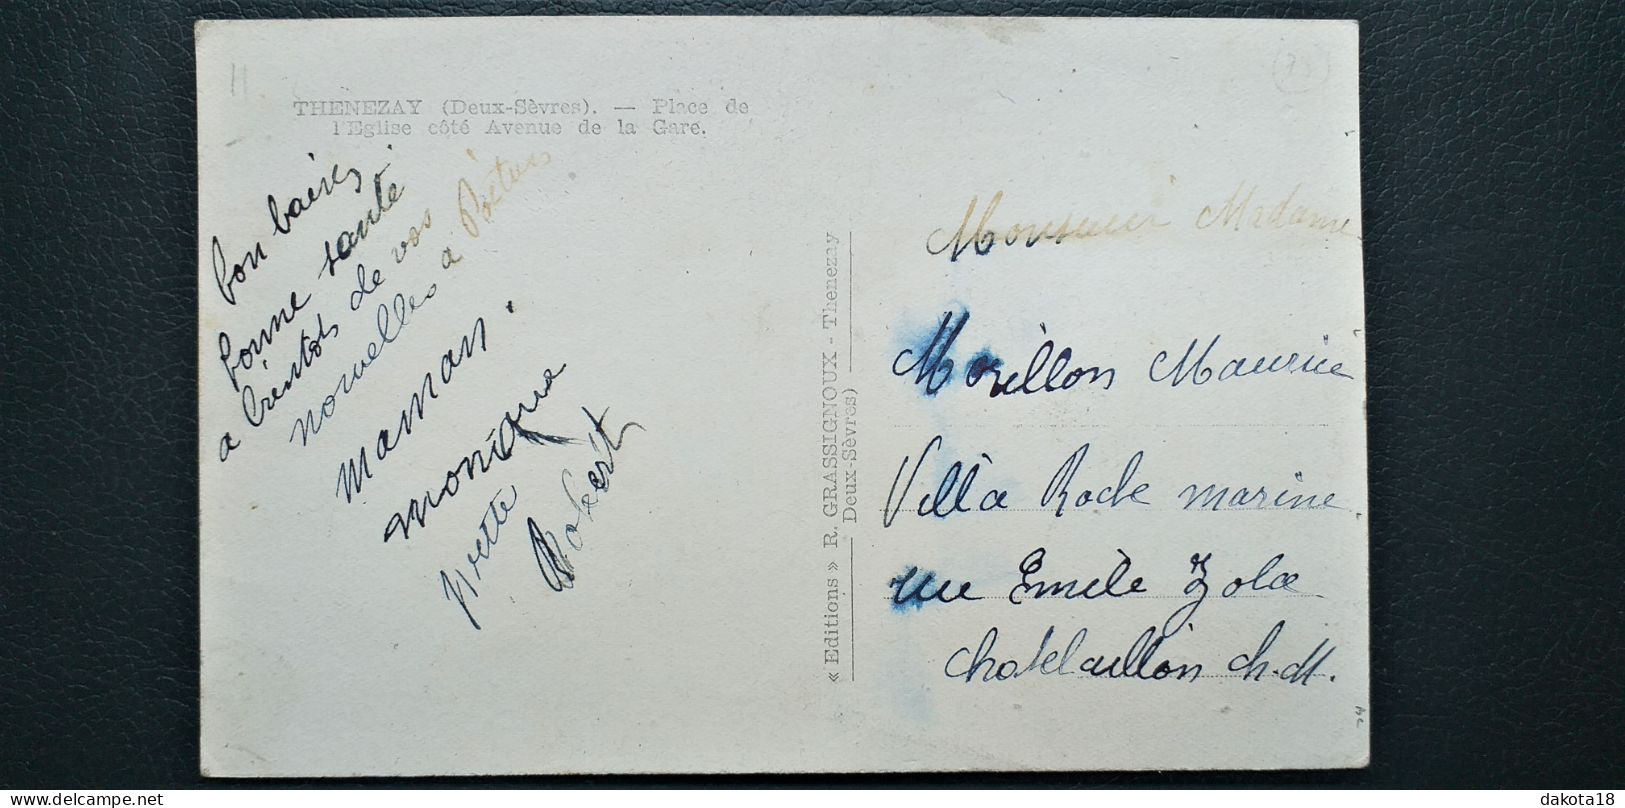 11
THENEZAY (Deux-Sèvres). — Place de
l'Eglise côté Avenue de la Gare.
bon baisers
bonne santé
a bientôt de vos
nouvelles a
maman.
monique
yvette
Robert
« Editions » R. GRASSIGNOUX - Thenezay
Deux-Sèvres)
Monsieur Madame
Morillon Maurice
Villa Roche marine
rue Emile Zola
chatelaillon ch.M.
dakota18